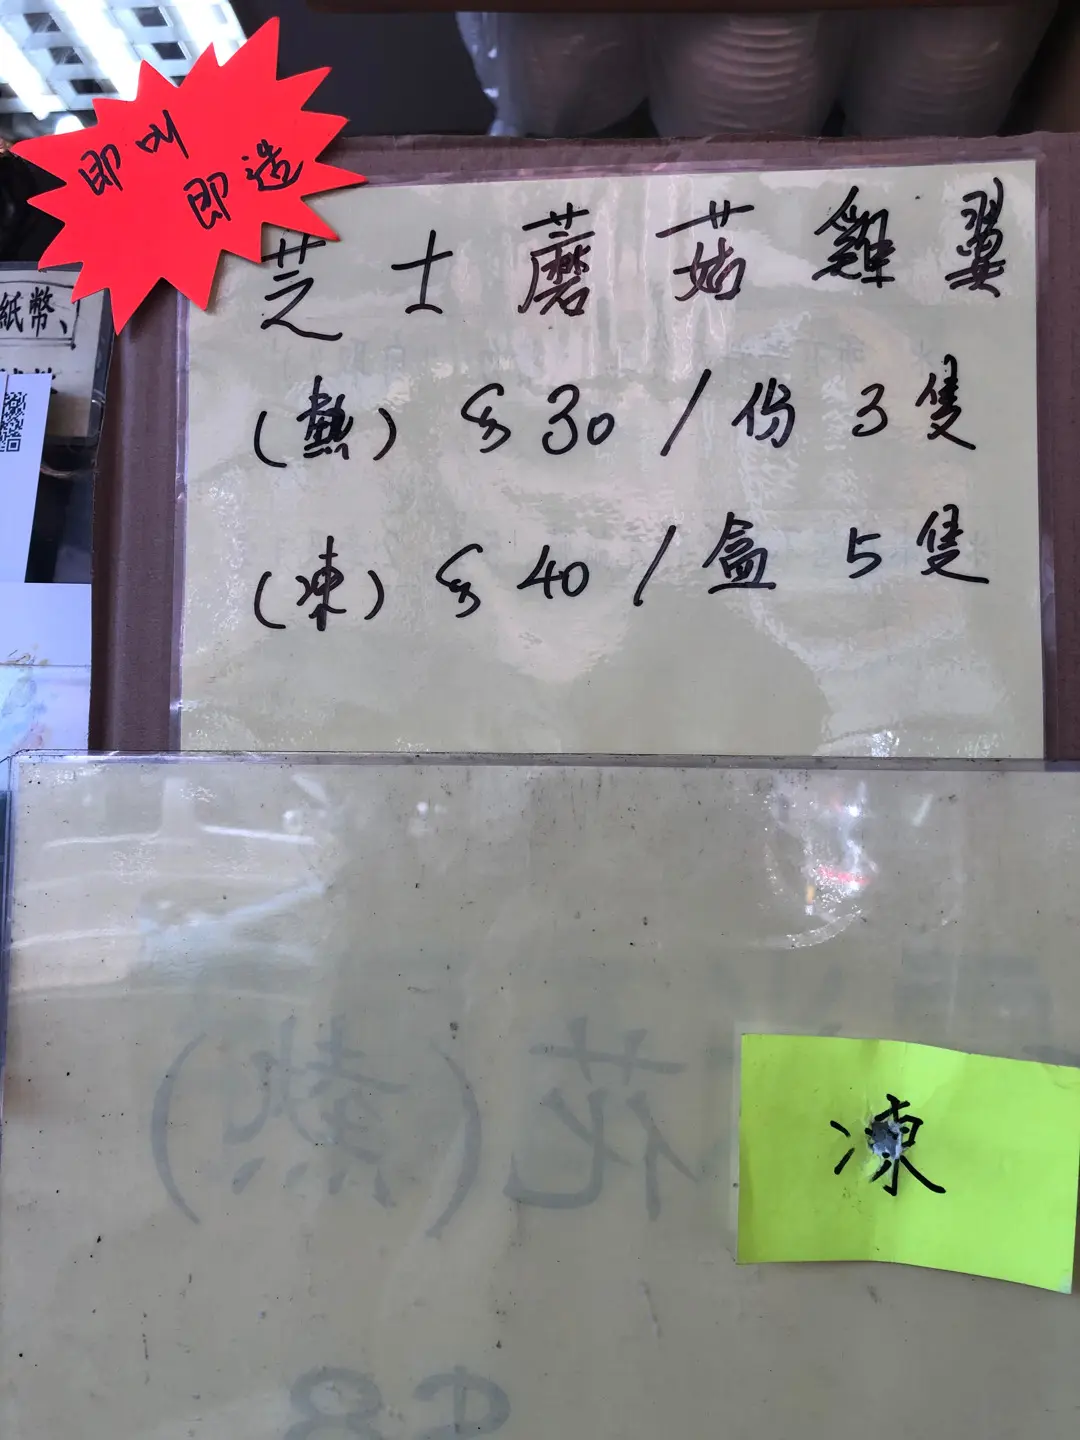 即叫
即造
紙幣、
芝士蘑菇雞翼
(熱) $30/份 3隻
(凍) $40/盒 5隻
花(熱)
凍